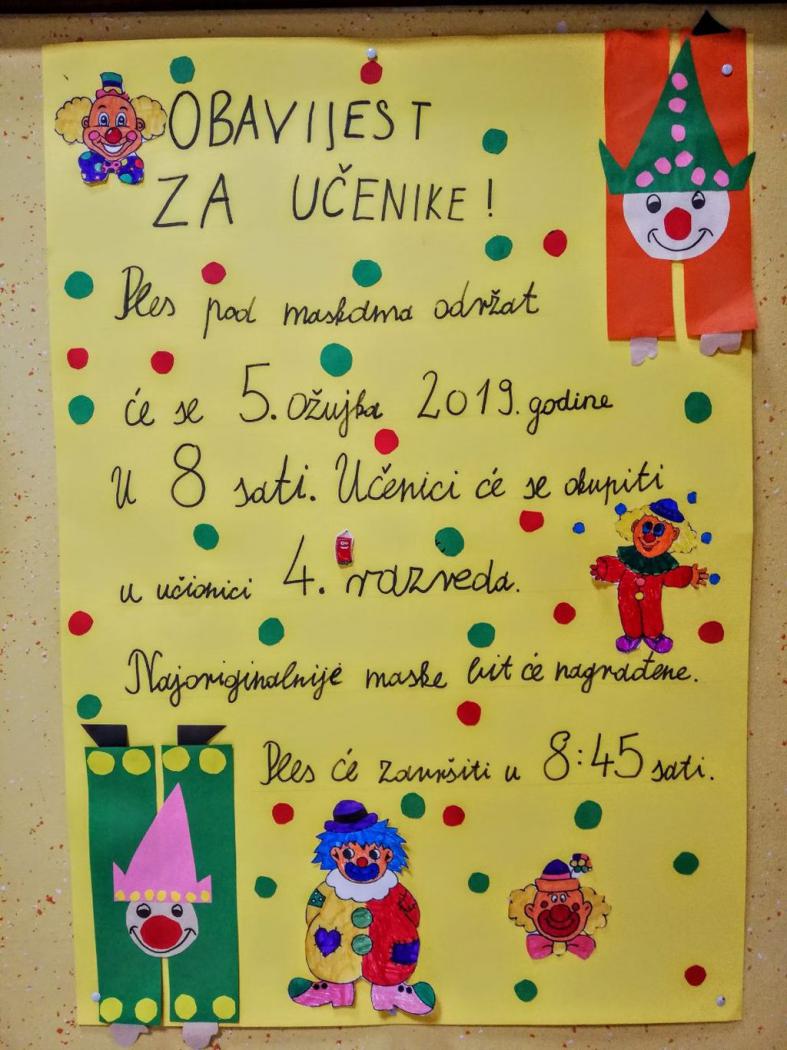 OBAVIJEST
ZA UČENIKE!
Ples pod maskama održat
će se 5. ožujka 2019. godine
U 8 sati. Učenici će se okupiti
u učionici 4. razreda.
Najoriginalnije maske bit će nagrađene.
Ples će završiti u 8:45 sati.